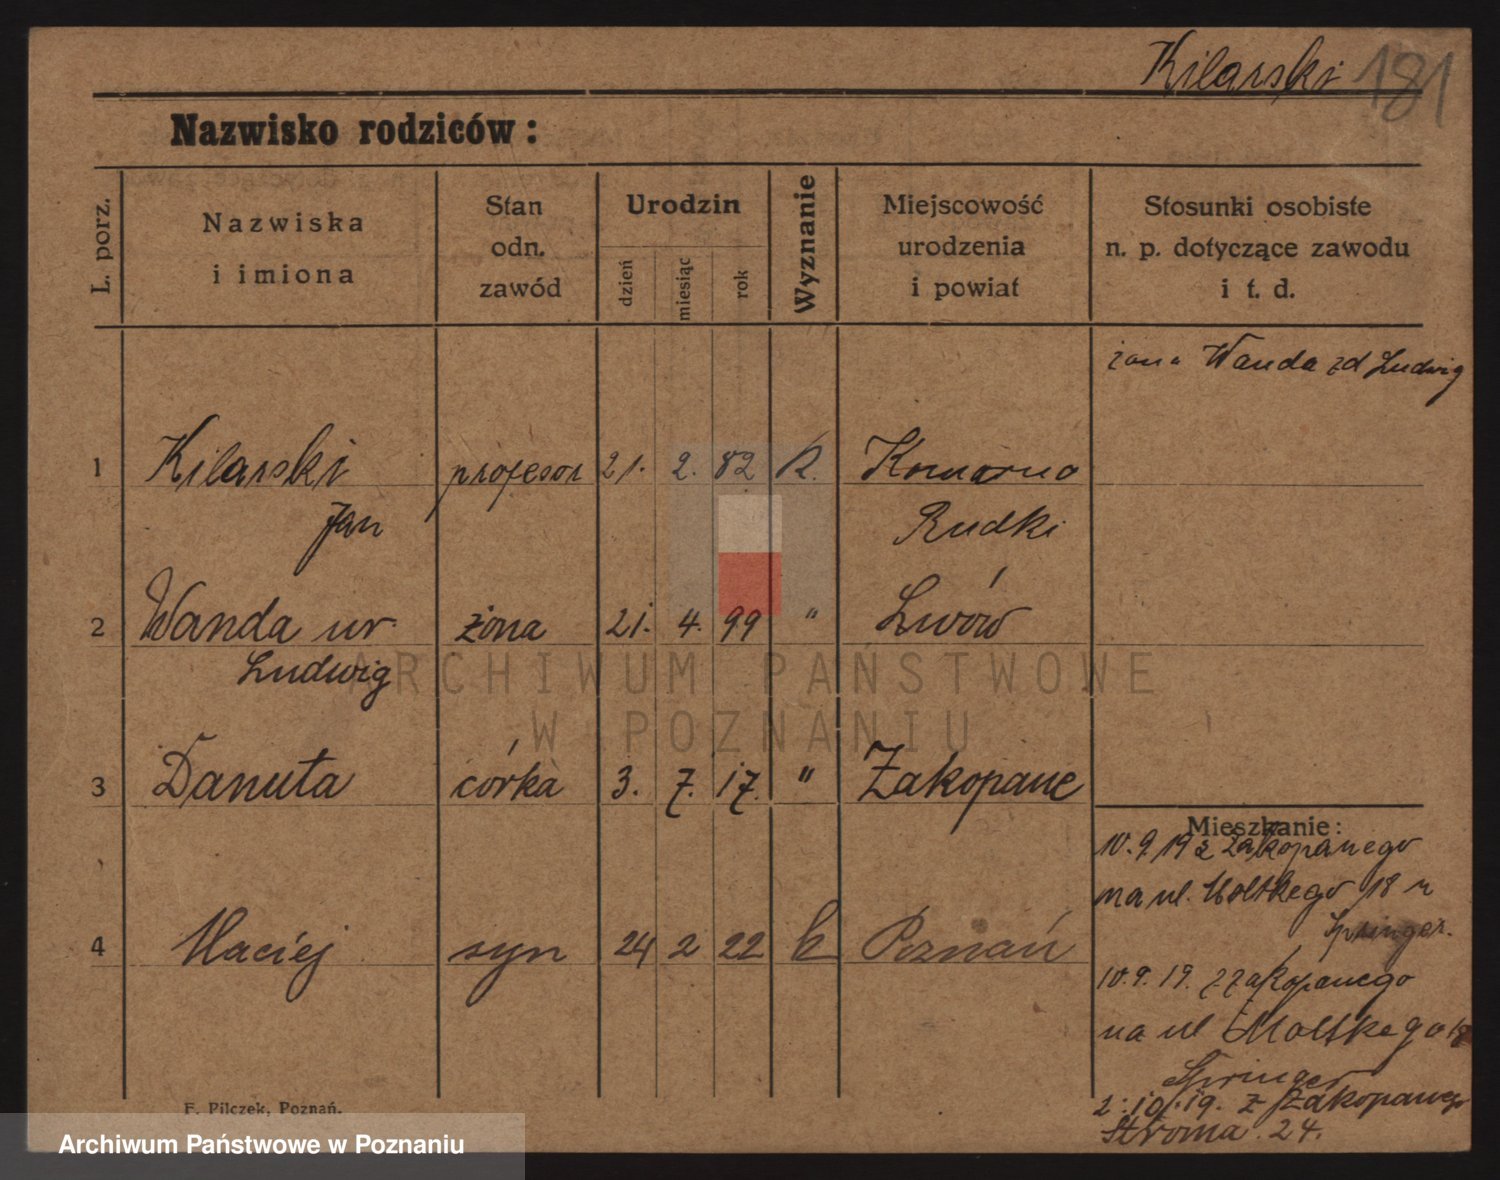 Kilarski 181
Nazwisko rodziców:
L. porz.
Nazwiska
i imiona
Stan
odn.
zawód
Urodzin
dzień
miesiąc
rok
Wyznanie
Miejscowość
urodzenia
i powiat
Stosunki osobiste
n. p. dotyczące zawodu
i t. d.
żona Wanda zd Ludwig
1 Kilarski profesor 21. 2. 82 k. Komarno
Jan Rudki
2 Wanda ur. żona 21. 4. 99 " Lwów
Ludwig
3 Danuta córka 3. 7. 17. " Zakopane
4 Maciej syn 24 2 22 k Poznań
Mieszkanie:
10.9.19 z Zakopanego
na ul. Moltkego 18 u
Springer.
10.9.19. z Zakopanego
na ul Moltkego 18
Springer
2.10.19. z Zakopanego
Stroma 24.
F. Pilczek, Poznań.
ARCHIWUM PAŃSTWOWE
W POZNANIU
Archiwum Państwowe w Poznaniu